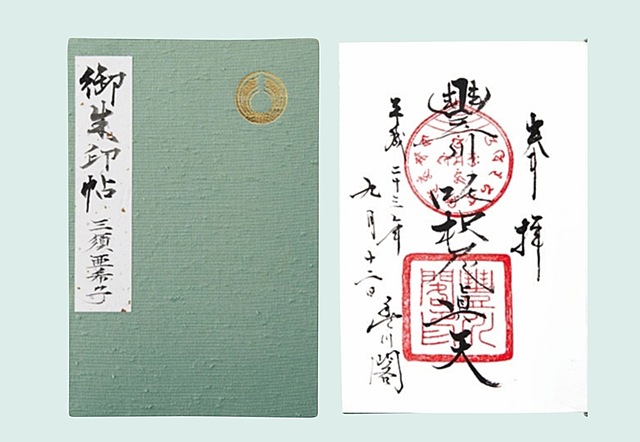 御朱印帖
三須亜希子
奉拝
豐川吒枳尼眞天
平成二十三年
九月十二日
豊川閣
豐川閣印